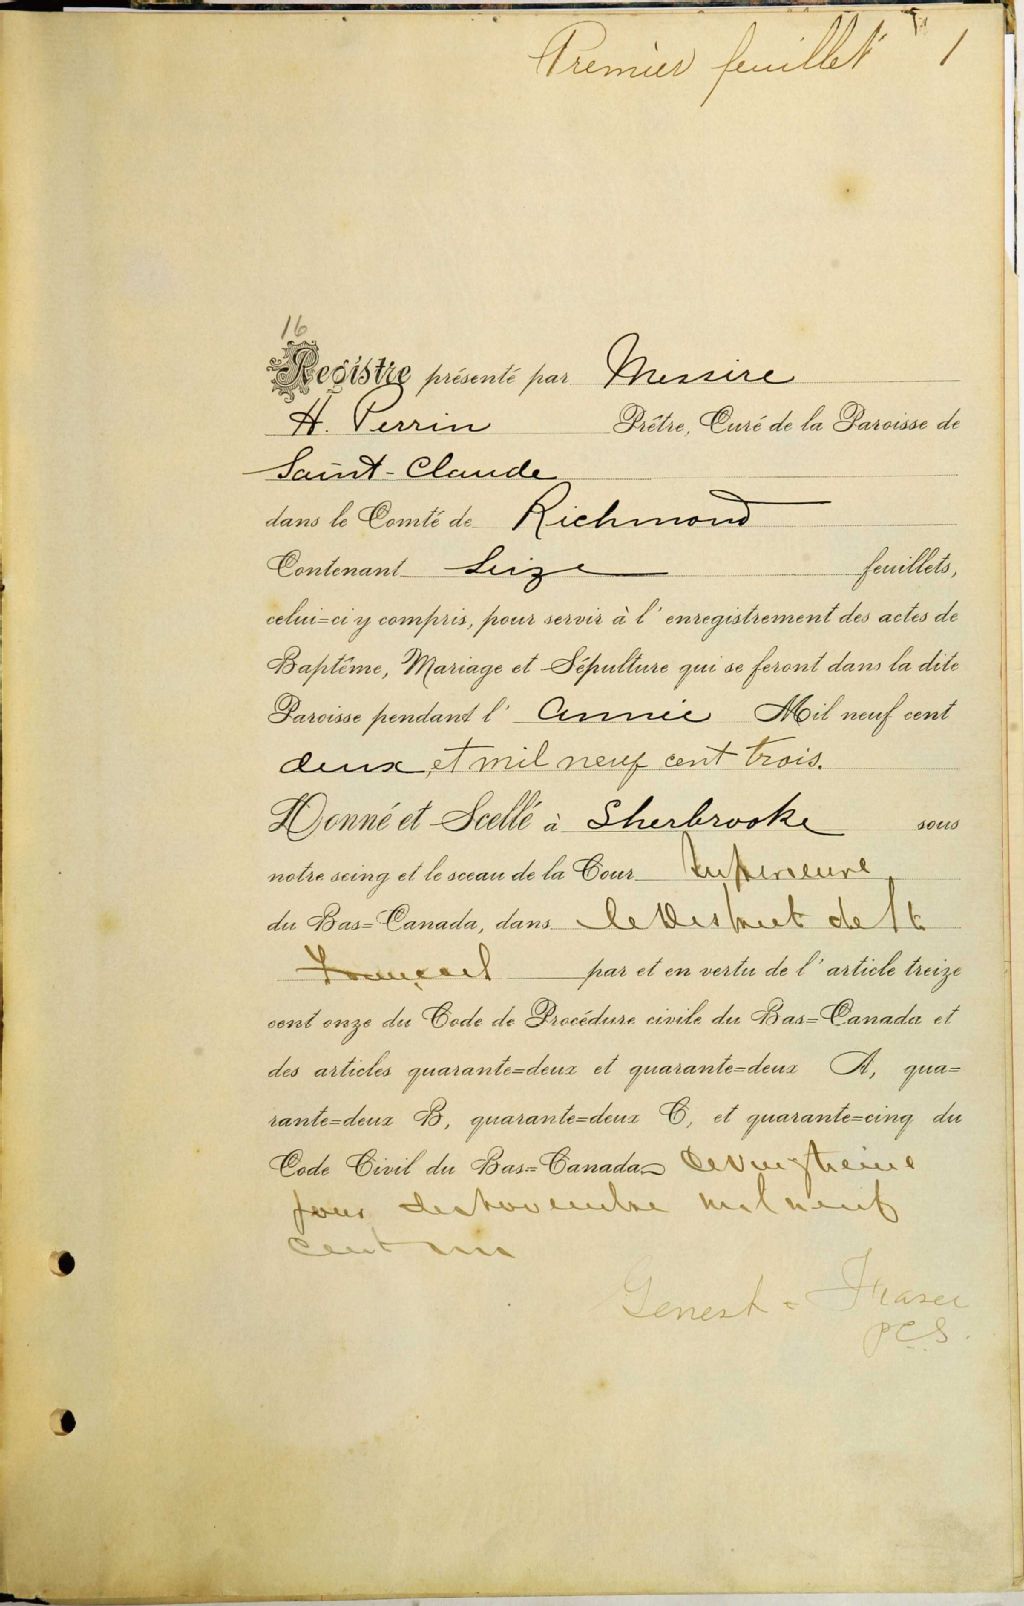 Premier feuillet 1
16
Registre présenté par Messire
H. Perrin Prêtre, Curé de la Paroisse de
Saint-Claude
dans le Comté de Richmond
Contenant Seize feuillets,
celui=ci y compris, pour servir à l'enregistrement des actes de
Baptême, Mariage et Sépulture qui se feront dans la dite
Paroisse pendant l'année Mil neuf cent
deux et mil neuf cent trois.
Donné et Scellé à Sherbrooke sous
notre seing et le sceau de la Cour Supérieure
du Bas=Canada, dans le District de St
François par et en vertu de l'article treize
cent onze du Code de Procédure civile du Bas=Canada et
des articles quarante=deux et quarante=deux A, qua=
rante=deux B, quarante=deux C, et quarante=cinq du
Code Civil du Bas=Canada
jour de Novembre mil neuf
cent un
Genest & Fraser
P.C.S.